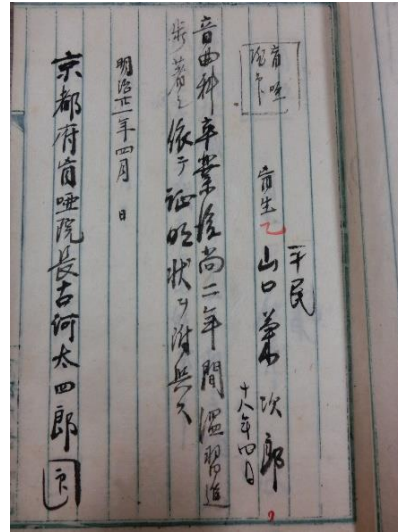 盲唖院印
平民
盲生乙山口菊次郎
十八年四月
音曲科卒業後尚二年間温習進
歩著シ依テ証明状ヲ附与ス
明治廿一年四月 日
京都府盲唖院長古河太四郎 印